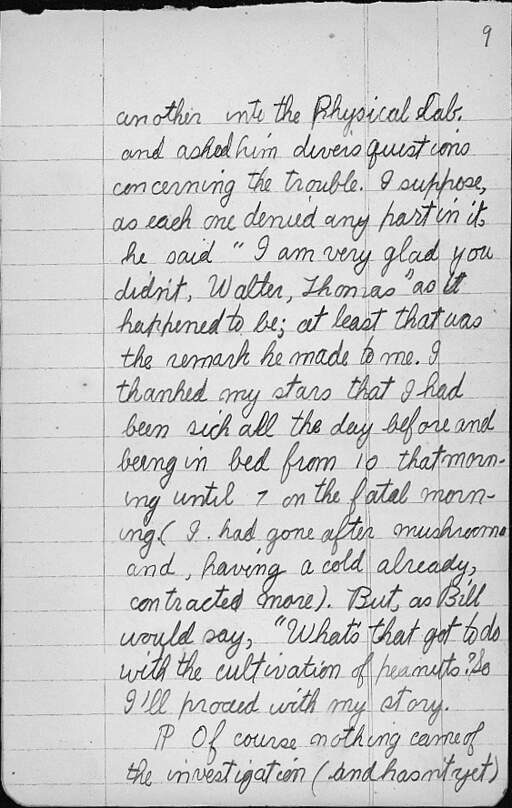 9
another into the Physical Lab.
and asked him divers questions
concerning the trouble. I suppose,
as each one denied any part in it,
he said "I am very glad you
didn't, Walter, Thomas" as it
happened to be; at least that was
the remark he made to me. I
thanked my stars that I had
been sick all the day before and
being in bed from 10 that morn-
ing until 7 on the fatal morn-
ing. (I had gone after mushrooms
and, having a cold already,
contracted more). But, as Bill
would say, "What's that got to do
with the cultivation of peanuts?" So
I'll proceed with my story.
P Of course nothing came of
the investigation (and hasn't yet)